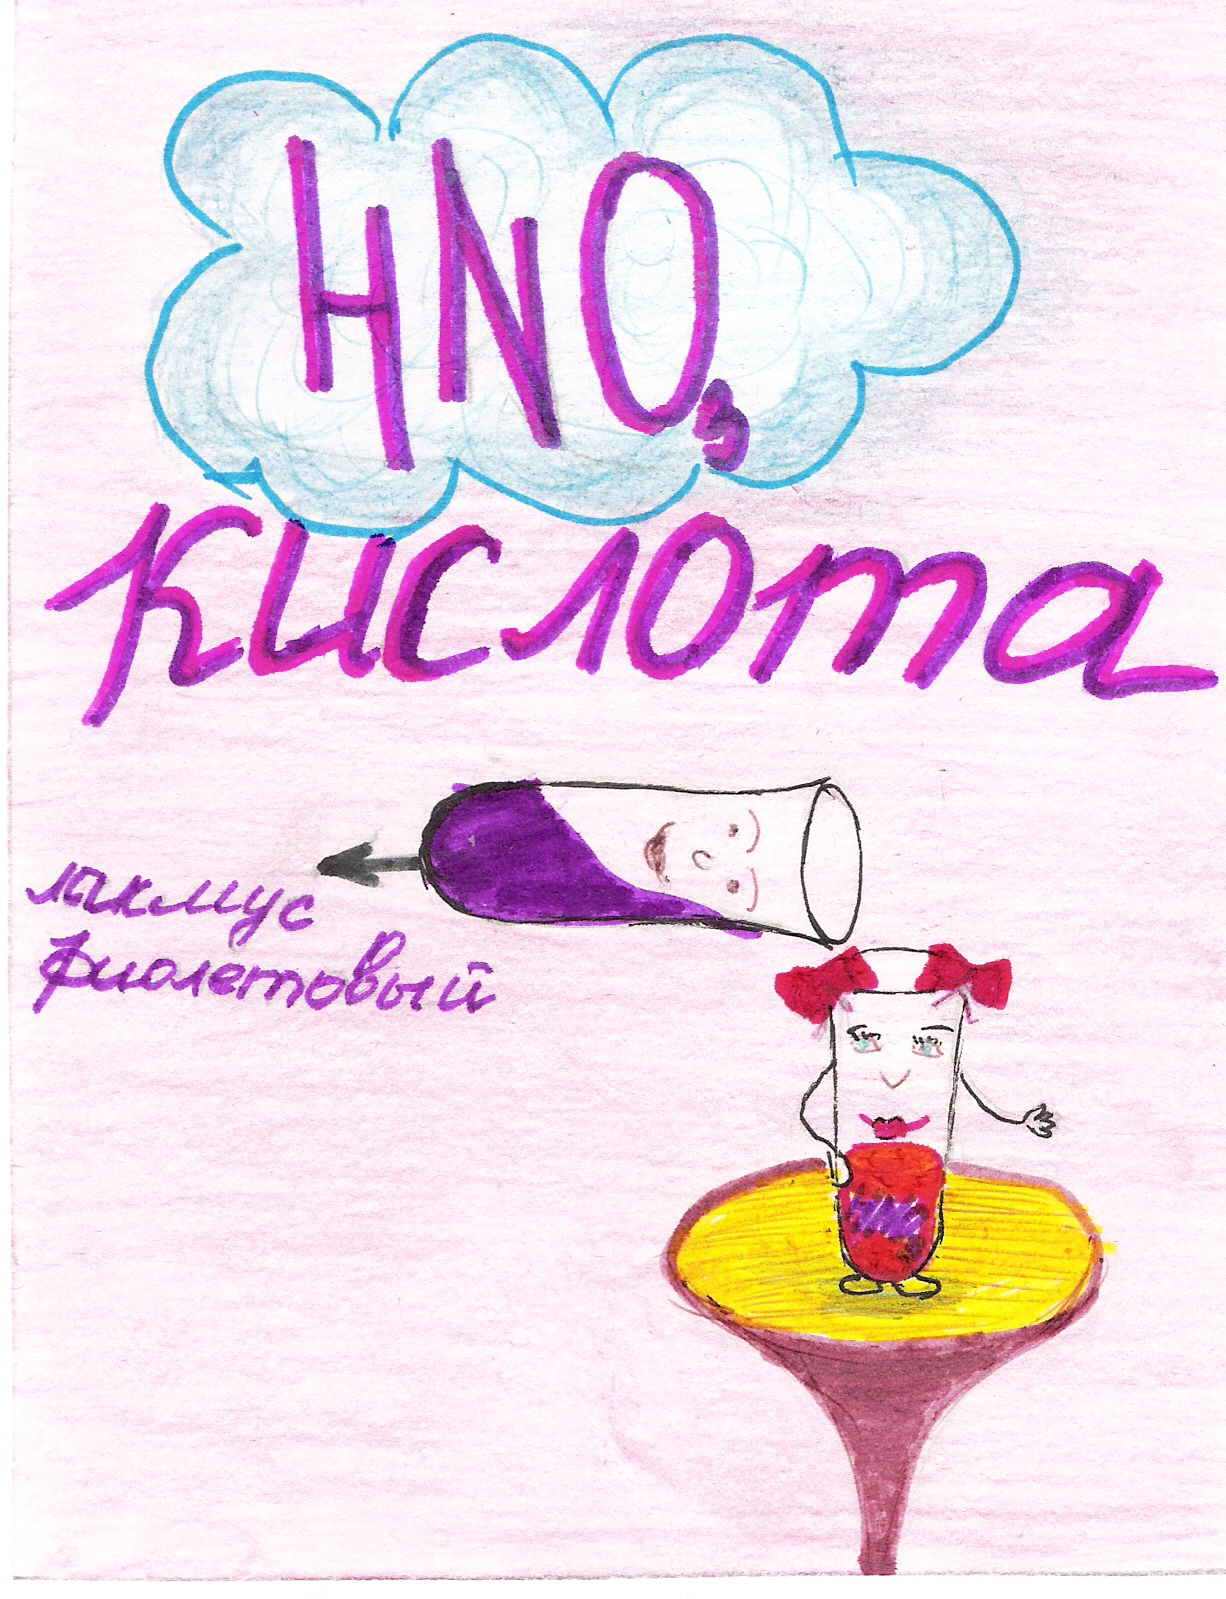 HNO₃
кислота
лакмус
фиолетовый
HNO₃